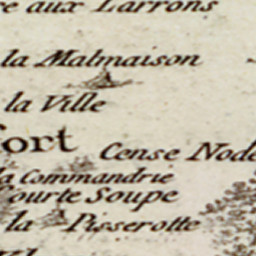 aux Larrons
la Malmaison
la Ville
fort
Cense Node
la Commandrie
Courte Soupe
la Pisserotte